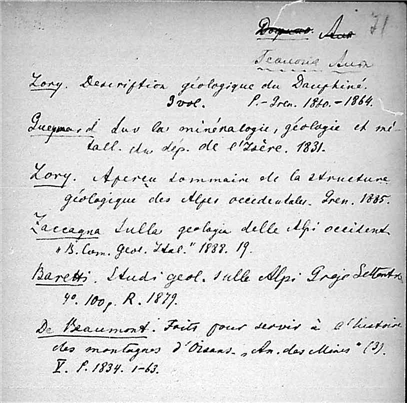 71
Zory. Description géologique du Dauphiné.
3 vol. P.-Gren. 1860.-1864.
Gueymard sur la minéralogie, géologie et mé-
tall. du dép. de l'Isère. 1831.
Zory. Aperçu sommaire de la structure
géologique des Alpes occidentales. Gren. 1885.
Zaccagna Sulla geologia delle Alpi occident.
"B. Com. Geol. Ital." 1888. 19.
Baretti. Studi geol. sulle Alpi Graje Settentr.
4°. 100 p. R. 1879.
De Beaumont. Faits pour servir à l'histoire
des montagnes d'Oisans. "An. des Mines" (3).
V. P. 1834. 1-63.